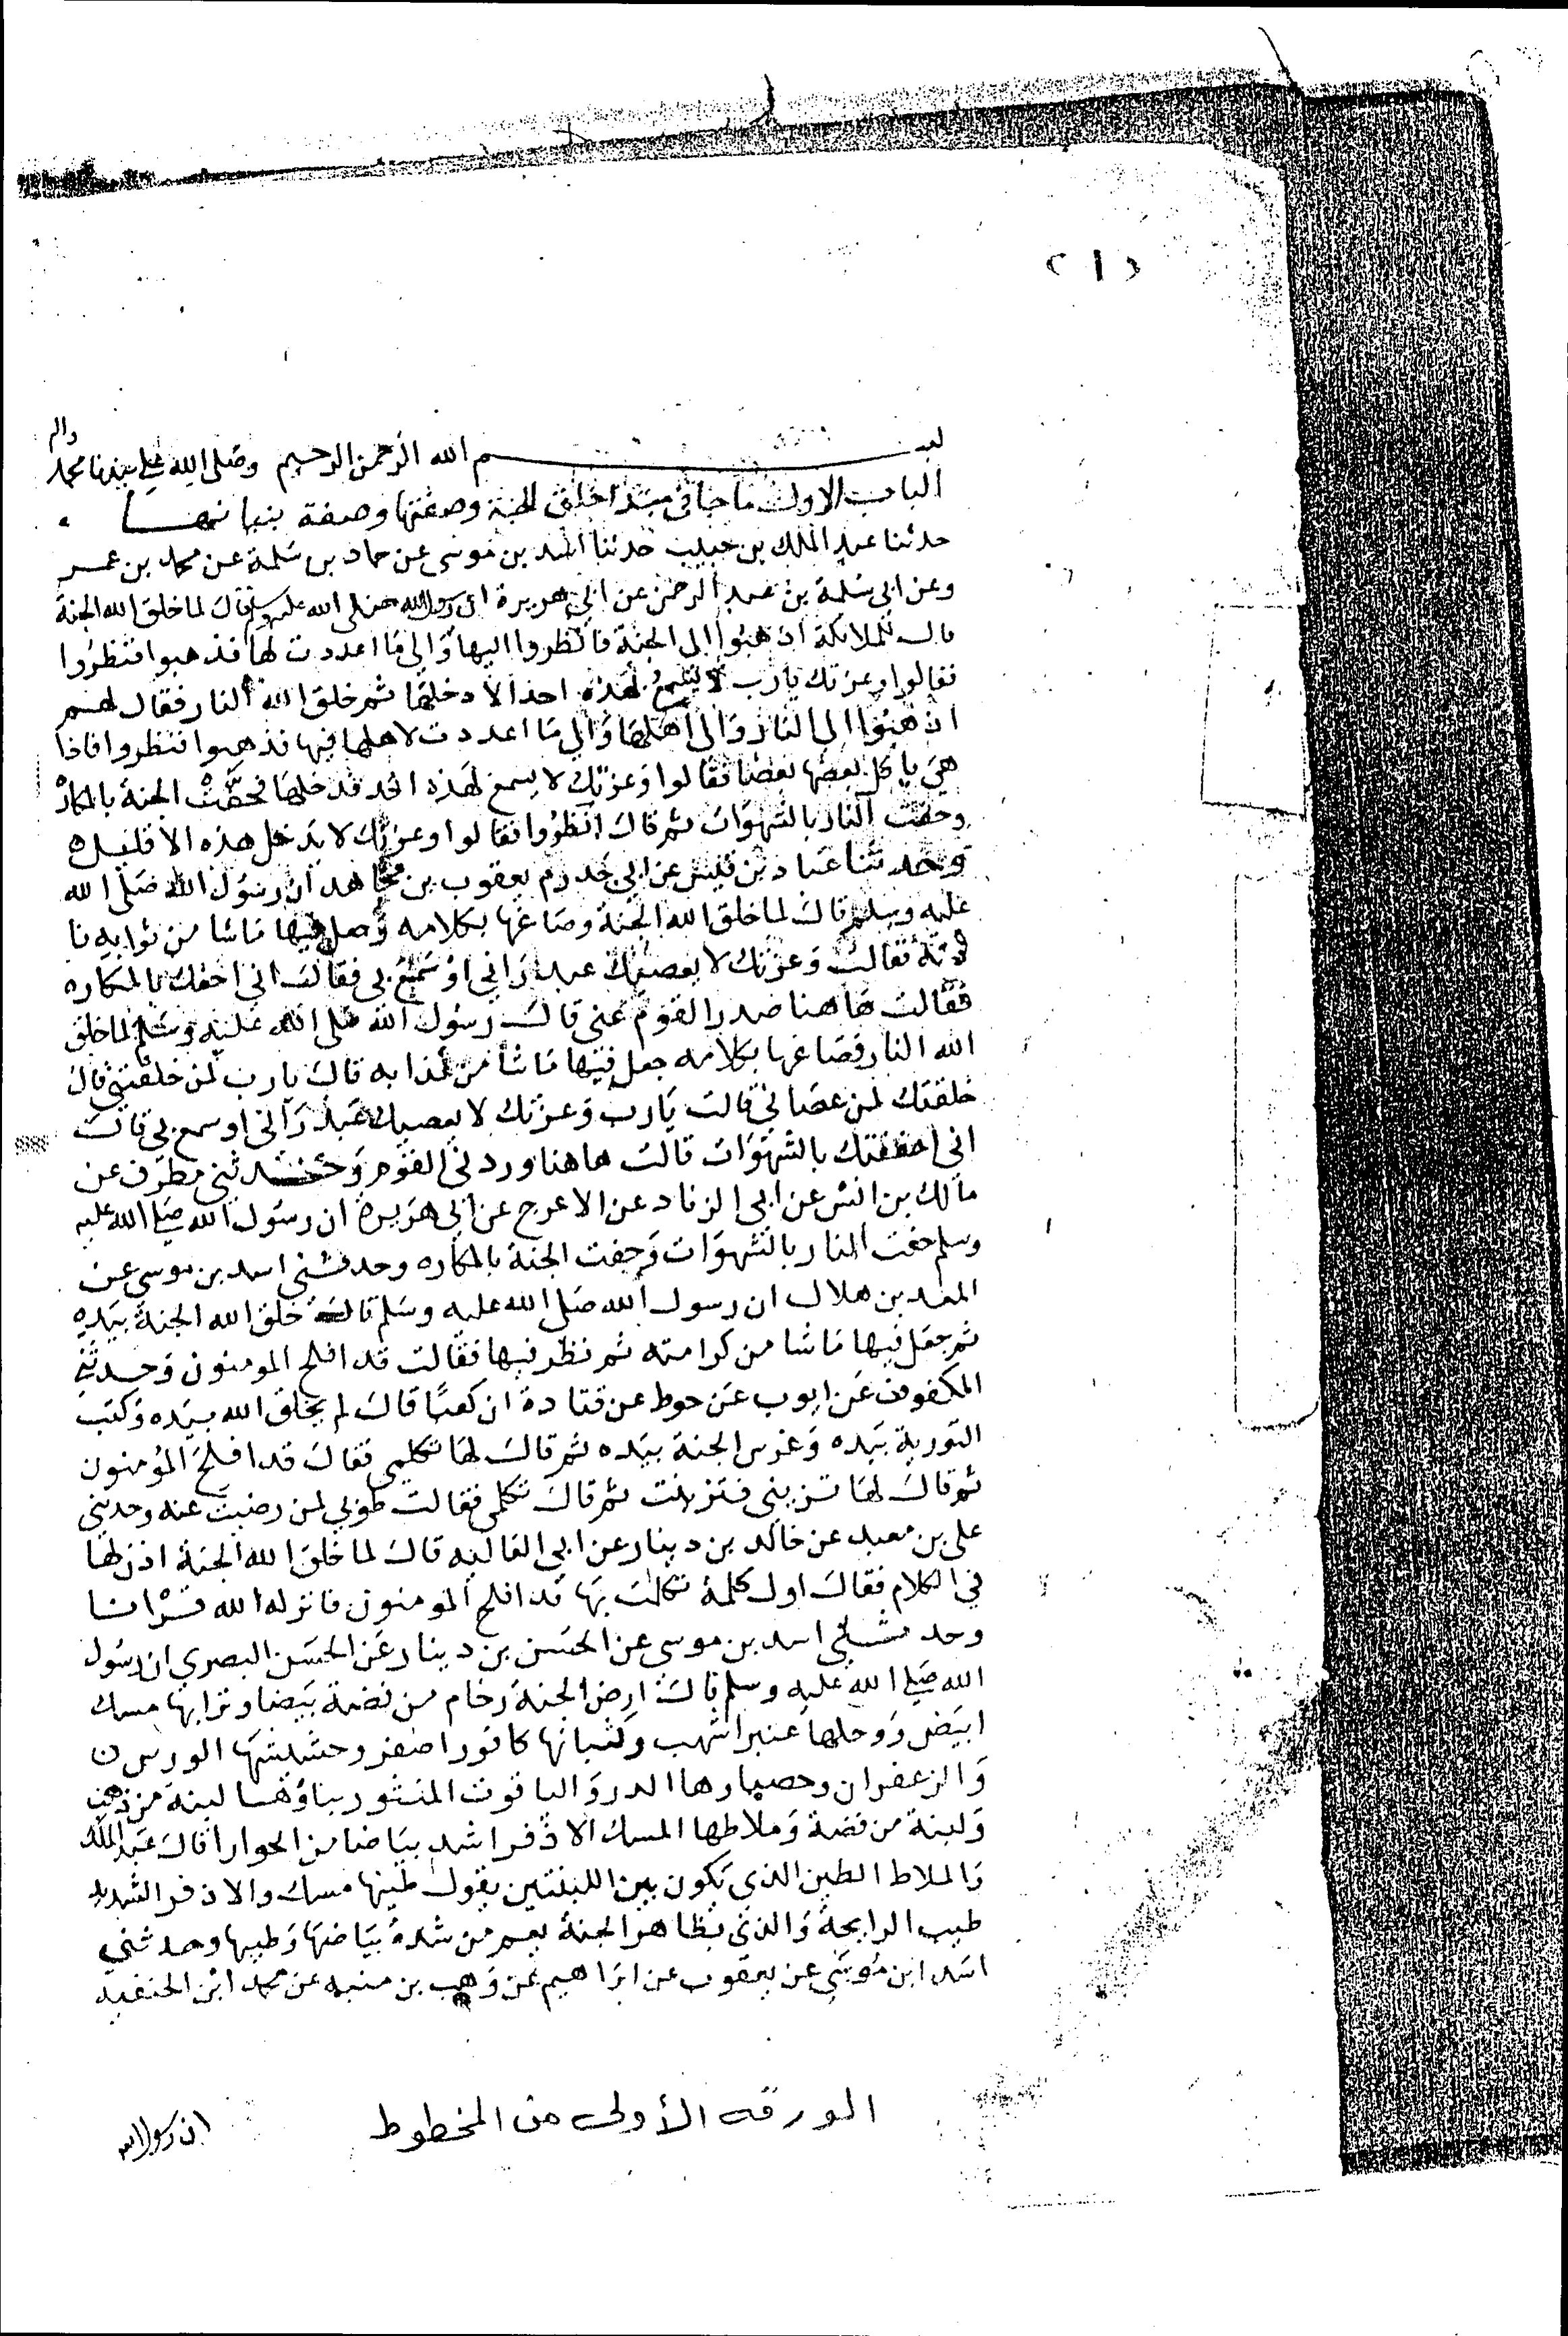 (١)
بسم الله الرحمن الرحيم وصلى الله على سيدنا محمد واله
الباب الاول ما جا فى مبتدا خلق الجنة وصفتها وصفة بنيانها
حدثنا عبد الملك بن حبيب حدثنا اسد بن موسى عن حماد بن سلمة عن محمد بن عمر
وعن ابى سلمة بن عبد الرحمن عن ابى هريرة ان رسول الله صلى الله عليه وسلم قال لما خلق الله الجنة
قال للملائكة اذهبوا الى الجنة فانظروا اليها والى ما اعددت لها فذهبوا فنظروا
فقالوا وعزتك يا رب لا يسمع بهذه احد الا دخلها ثم خلق الله النار فقال لهم
اذهبوا الى النار والى اهلها والى ما اعددت لاهلها فيها فذهبوا فنظروا فاذا
هى ياكل بعضها بعضا فقالوا وعزتك لا يسمع لهذه احد فدخلها فحفت الجنة بالمكاره
وحفت النار بالشهوات ثم قال انظروا فقالوا وعزتك لا يدخل هذه الا قليل
وحدثنا عباد بن قيس عن ابي يعقوب بن مجاهد ان رسول الله صلى الله
عليه وسلم قال لما خلق الله الجنة وصاغها بكلامه وجعل فيها ما شا من ثوابه
فقالت وعزتك لا يعصيك عبد راني او سمع بى فقال انى احفك بالمكاره
فقالت هاهنا صدر القوم عني قال رسول الله صلى الله عليه وسلم لما خلق
الله النار فصاغها بكلامه جعل فيها ما شا من عذابه قالت يا رب لمن خلقتني قال
خلقتك لمن عصاني قالت يا رب وعزتك لا يعصيك عبد رآنى او سمع بي قال
انى احففتك بالشهوات قالت هاهنا وردنى القوم وحدثنى مطرف عن
مالك بن انس عن ابى الزناد عن الاعرج عن ابى هريرة ان رسول الله صلى الله عليه
وسلم حفت النار بالشهوات وحفت الجنة بالمكاره وحدثنى اسد بن موسى عن
بن هلال ان رسول الله صلى الله عليه وسلم قال خلق الله الجنة بيده
ثم جعل فيها ما شا من كرامته ثم نظر فيها فقالت قد افلح المومنون وحدثنى
المكفوف عن ايوب عن حوط عن قتادة ان كعبا قال لم يخلق الله بيده وكتب
التورية بيده وغرس الجنة بيده ثم قال لها تكلمى فقالت قد افلح المؤمنون
ثم قال لها تزينى فتزينت ثم قال تكلمى فقالت طوبى لمن رضيت عنه وحدثنى
على بن معبد عن خالد بن دينار عن ابى العاليه قال لما خلق الله الجنة اذن لها
في الكلام فقال اول كلمة تكلمت بها قد افلح المومنون فانزله الله قرانا
وحدثنى اسد بن موسى عن الحسن بن دينار عن الحسن البصري ان رسول
الله صلى الله عليه وسلم قال ارض الجنة رخام من فضة بيضا وترابها مسك
ابيض ووحلها عنبر اشهب وكثبانها كافور اصفر وحشيشها الورس
والزعفران وحصبارها الدر والياقوت المنثور بناؤها لبنة من ذهب
ولبنة من فضة وملاطها المسك الاذفر اشد بياضا من الحوارا قال عبد الملك
والملاط الطين الذي يكون بين اللبنتين يقول طينها مسك والاذفر الشديد
طيب الرايحة والذى بظاهر الجنة يعمر من شدة بياضها وطيبها وحدثني
اسد ابن موسى عن يعقوب عن ابراهيم عن وهب بن منبه عن محمد ابن الحنفيه
ان رسول الله
الورقه الأولى من المخطوط